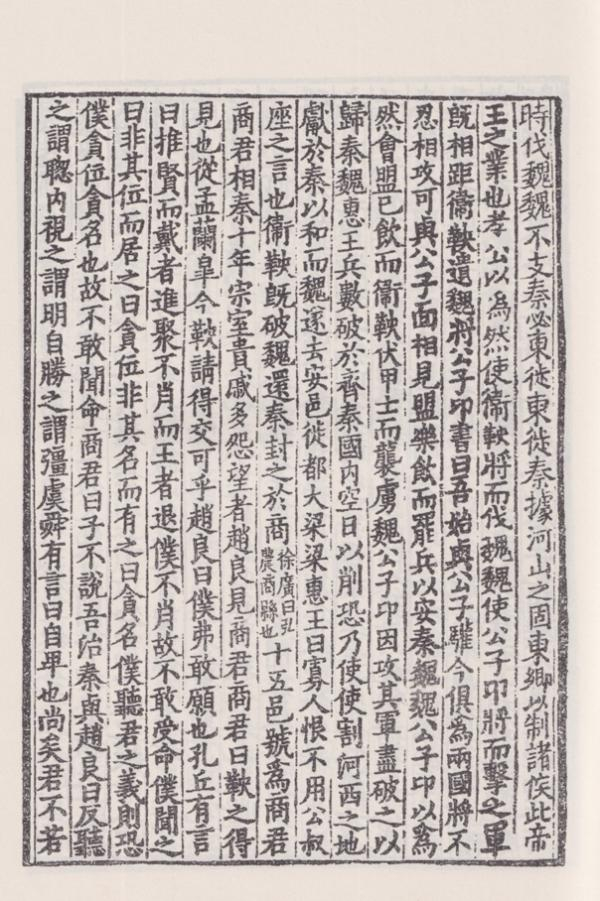 時伐魏魏不支秦必東徙東徙秦據河山之固東鄉以制諸侯此帝
王之業也孝公以為然使衞鞅將而伐魏魏使公子卬將而擊之軍
既相距衞鞅遺魏將公子卬書曰吾始與公子驩今俱為兩國將不
忍相攻可與公子面相見盟樂飲而罷兵以安秦魏魏公子卬以為
然會盟已飲而衞鞅伏甲士而襲虜魏公子卬因攻其軍盡破之以
歸秦魏惠王兵數破於齊秦國內空日以削恐乃使使割河西之地
獻於秦以和而魏遂去安邑徙都大梁梁惠王曰寡人恨不用公叔
座之言也衞鞅既破魏還秦封之於商徐廣曰弘農商縣也十五邑號為商君
商君相秦十年宗室貴戚多怨望者趙良見商君商君曰鞅之得
見也從孟蘭皐今鞅請得交可乎趙良曰僕弗敢願也孔丘有言
曰推賢而戴者進聚不肖而王者退僕不肖故不敢受命僕聞之
曰非其位而居之曰貪位非其名而有之曰貪名僕聽君之義則恐
僕貪位貪名也故不敢聞命商君曰子不說吾治秦與趙良曰反聽
之謂聰內視之謂明自勝之謂彊虞舜有言曰自卑也尚矣君不若